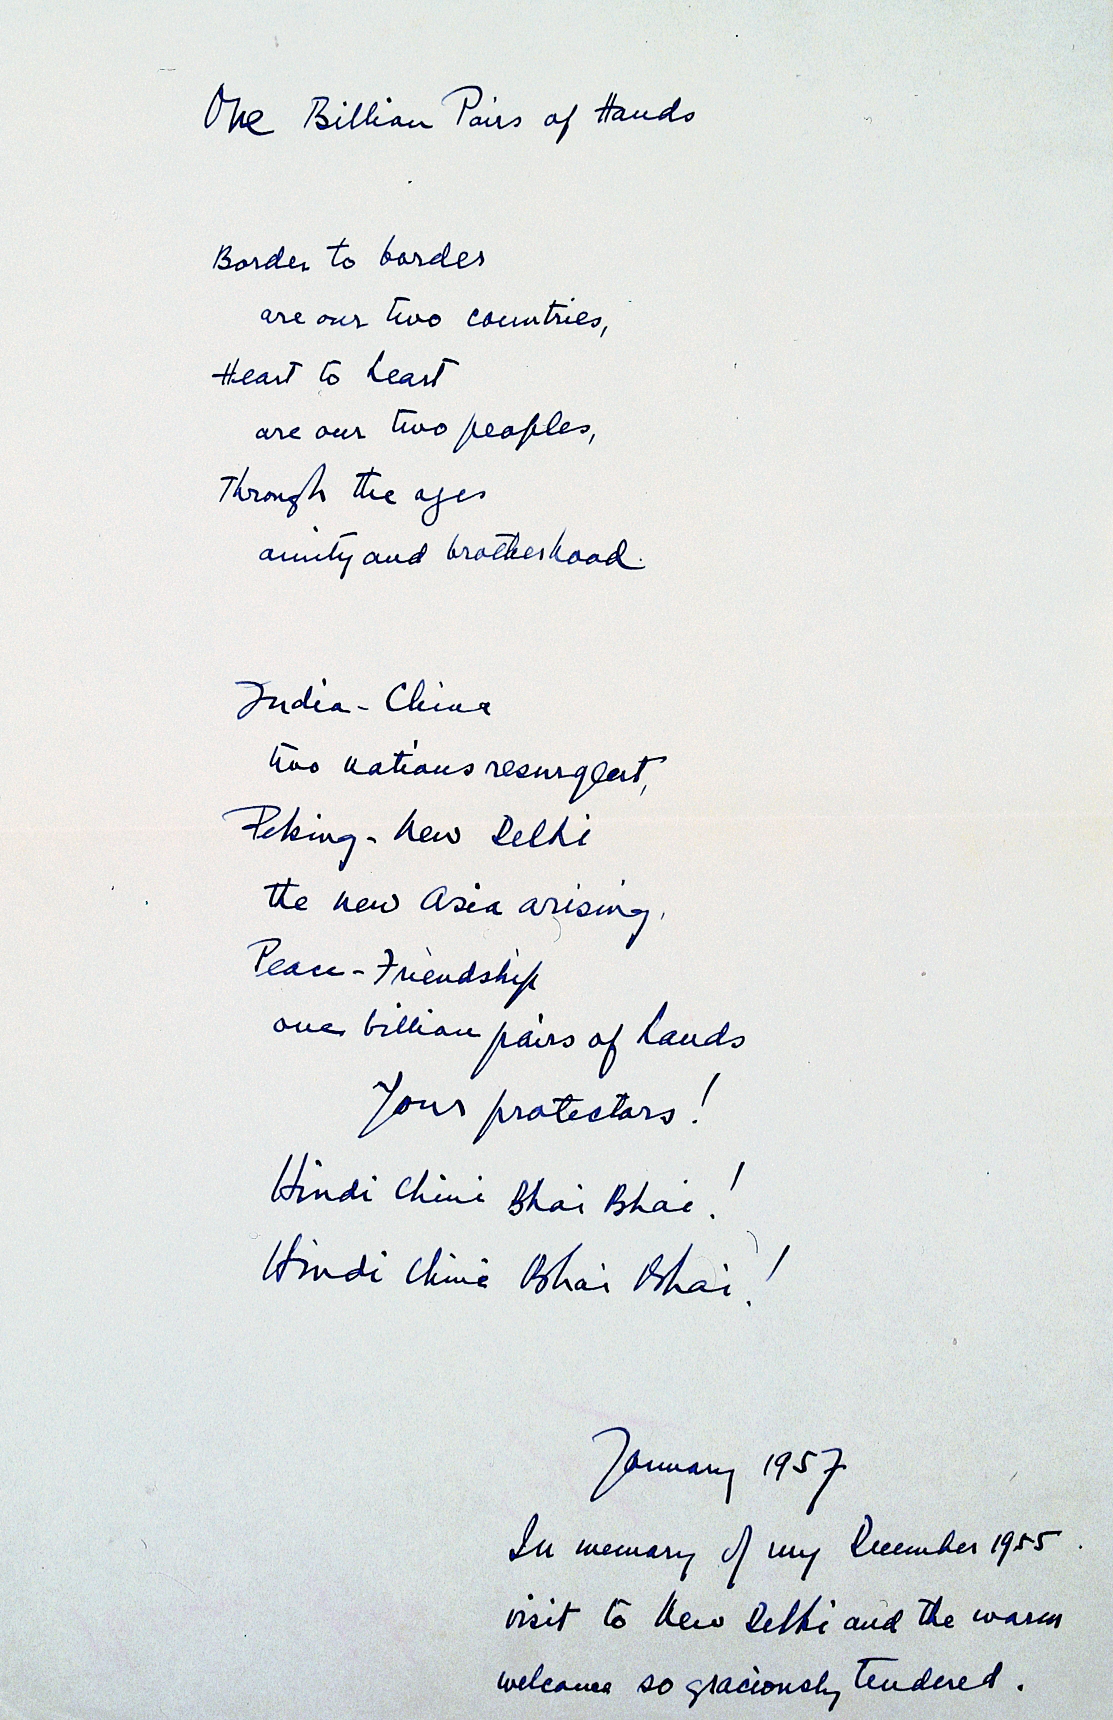 One Billion Pairs of Hands
Border to border
are our two countries,
Heart to heart
are our two peoples,
Through the ages
amity and brotherhood.
India - China
two nations resurgent,
Peking - New Delhi
the new Asia arising,
Peace - Friendship
one billion pairs of hands
Your protectors!
Hindi Chini Bhai Bhai!
Hindi Chini Bhai Bhai!
January 1957
In memory of my December 1955
visit to New Delhi and the warm
welcome so graciously tendered.